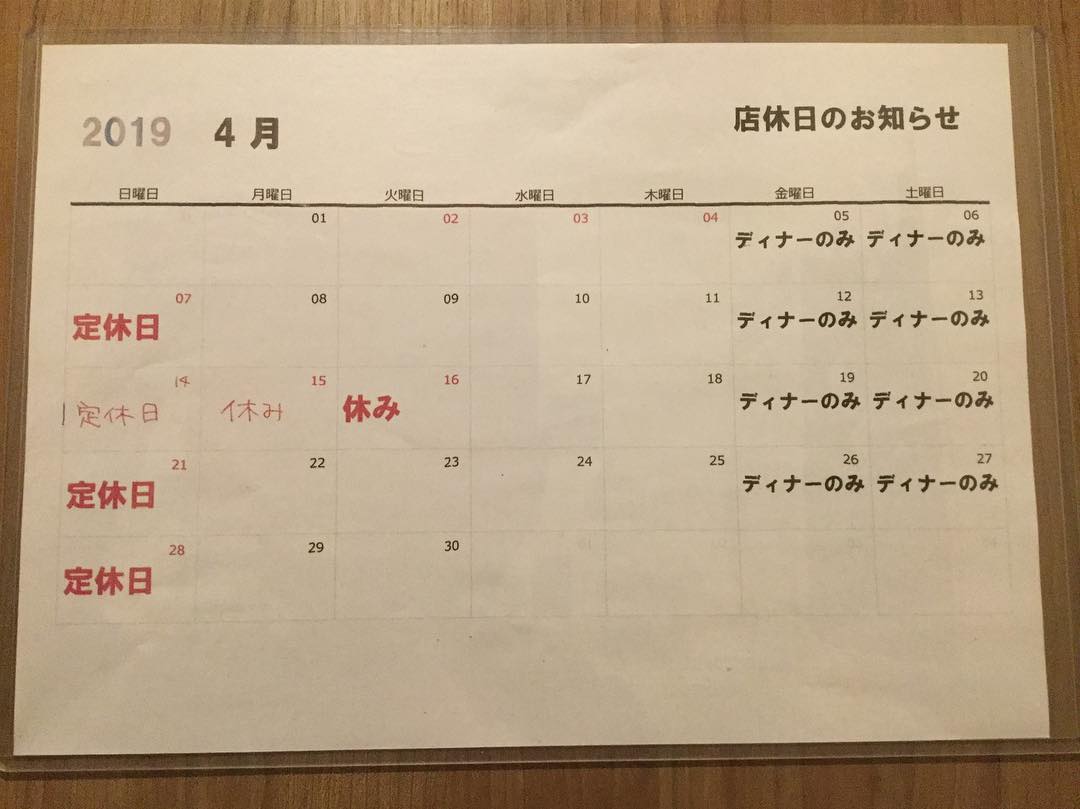 2019 4月
店休日のお知らせ
日曜日 月曜日 火曜日 水曜日 木曜日 金曜日 土曜日
01 02 03 04 05 06
ディナーのみ ディナーのみ
07 08 09 10 11 12 13
定休日 ディナーのみ ディナーのみ
14 15 16 17 18 19 20
定休日 休み 休み ディナーのみ ディナーのみ
21 22 23 24 25 26 27
定休日 ディナーのみ ディナーのみ
28 29 30
定休日